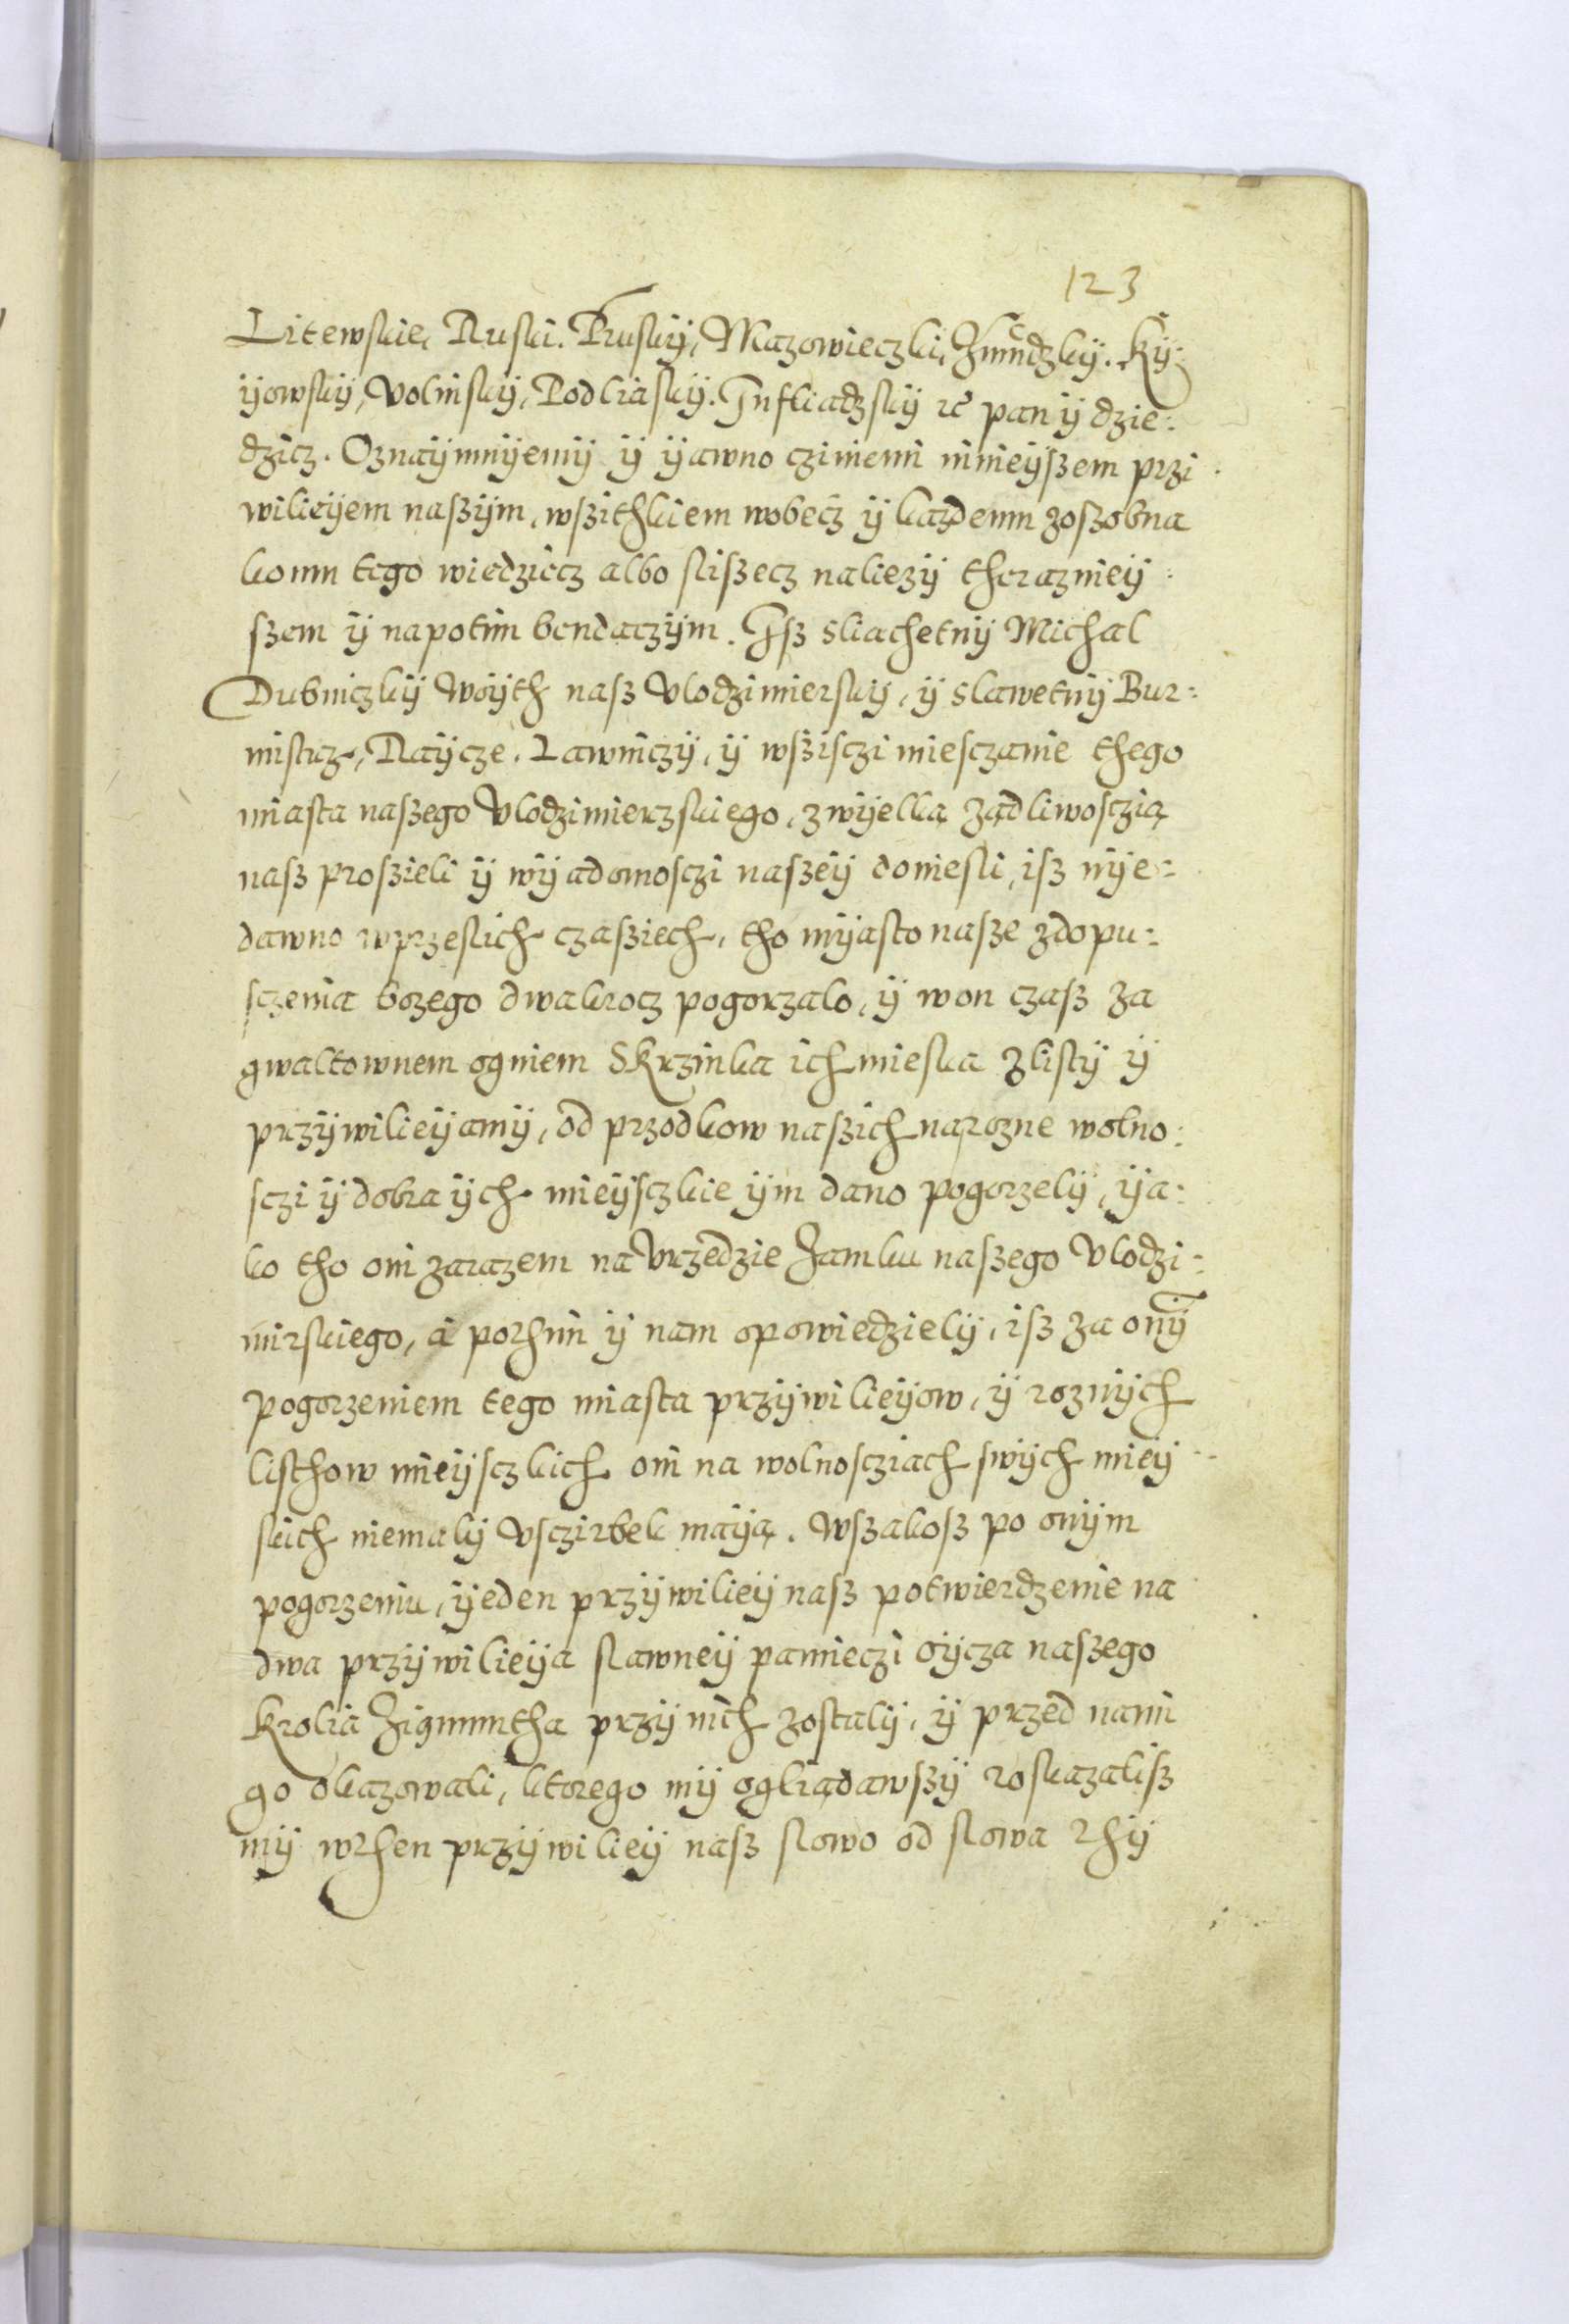 123
Litewskie, Ruski. Pruskÿ, Mazowieczki, Zmudzkÿ. Kÿ:
ÿowskÿ, Volinskÿ, Podliaskÿ. Infliadzskÿ etc pan ÿ dzie:
dzicz. Oznaÿmuÿemÿ ÿ ÿawno czinieni ninieÿszem przi
wilieÿem naszÿm, wszithkiem wobecz ÿ kazdemu zoszobna
komu tego wiedziecz albo sliszecz naliezÿ theraznieÿ:
szem ÿ napotim bendaczÿm. Isz sliachetnÿ Michal
Dubniczkÿ Woÿth nasz Vlodzimierskÿ, ÿ slawetnÿ Bur:
mistrz, Raÿcze. Lawniczÿ, ÿ wszisczi miesczanie thego
miasta naszego Vlodzimierzskiego, zwÿelką ządliwosczią
nasz proszieli ÿ wÿadomosczi naszeÿ doniesli, isz nÿe:
dawno wprzeslich czasziech, tho mÿasto nasze zdopu:
sczenia bozego dwakrocz pogorzalo, ÿ won czasz za
gwaltownem ogniem Skrzinka ich mieska zlistÿ ÿ
przÿwilieÿamÿ, od przodkow naszich narozne wolno:
sczi ÿ dobra ÿch mieÿsczkie ÿm dano pogorzelÿ, ÿa:
ko tho oni zarazem na Vrzedzie Zamku naszego Vlodzi:
mirskiego, a pothim ÿ nam opowiedzielÿ, isz za onÿ
pogorzeniem tego miasta przÿwilieÿow, ÿ roznÿch
listhow mieÿsczkich oni na wolnosciach swÿch mieÿ
skich niemalÿ Vsczirbek maÿą. Wszakosz po onÿm
pogorzeniu, ÿeden przÿwilieÿ nasz potwierdzenie na
dwa przÿwilieÿa slawneÿ pamieczi oÿcza naszego
Krolia Zigmuntha przÿ nich zostalÿ, ÿ przed nami
go okazowali, ktorego mÿ ogliądawszÿ roskazalisz
mÿ wthen przÿwilieÿ nasz slowo od slowa thÿ